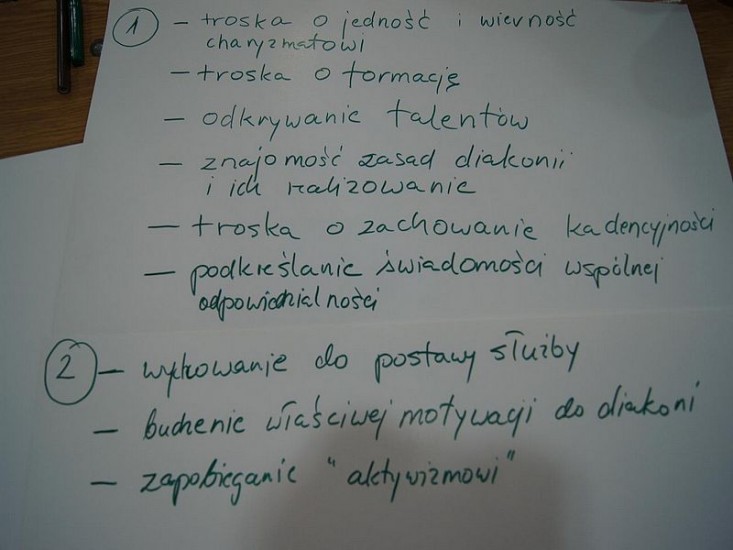 1 – troska o jedność i wierność
charyzmatowi
– troska o formację
– odkrywanie talentów
– znajomość zasad diakonii
i ich realizowanie
– troska o zachowanie kadencyjności
– podkreślanie świadomości wspólnej
odpowiedzialności
2 – wychowanie do postawy służby
– budzenie właściwej motywacji do diakoni
– zapobieganie "aktywizmowi"